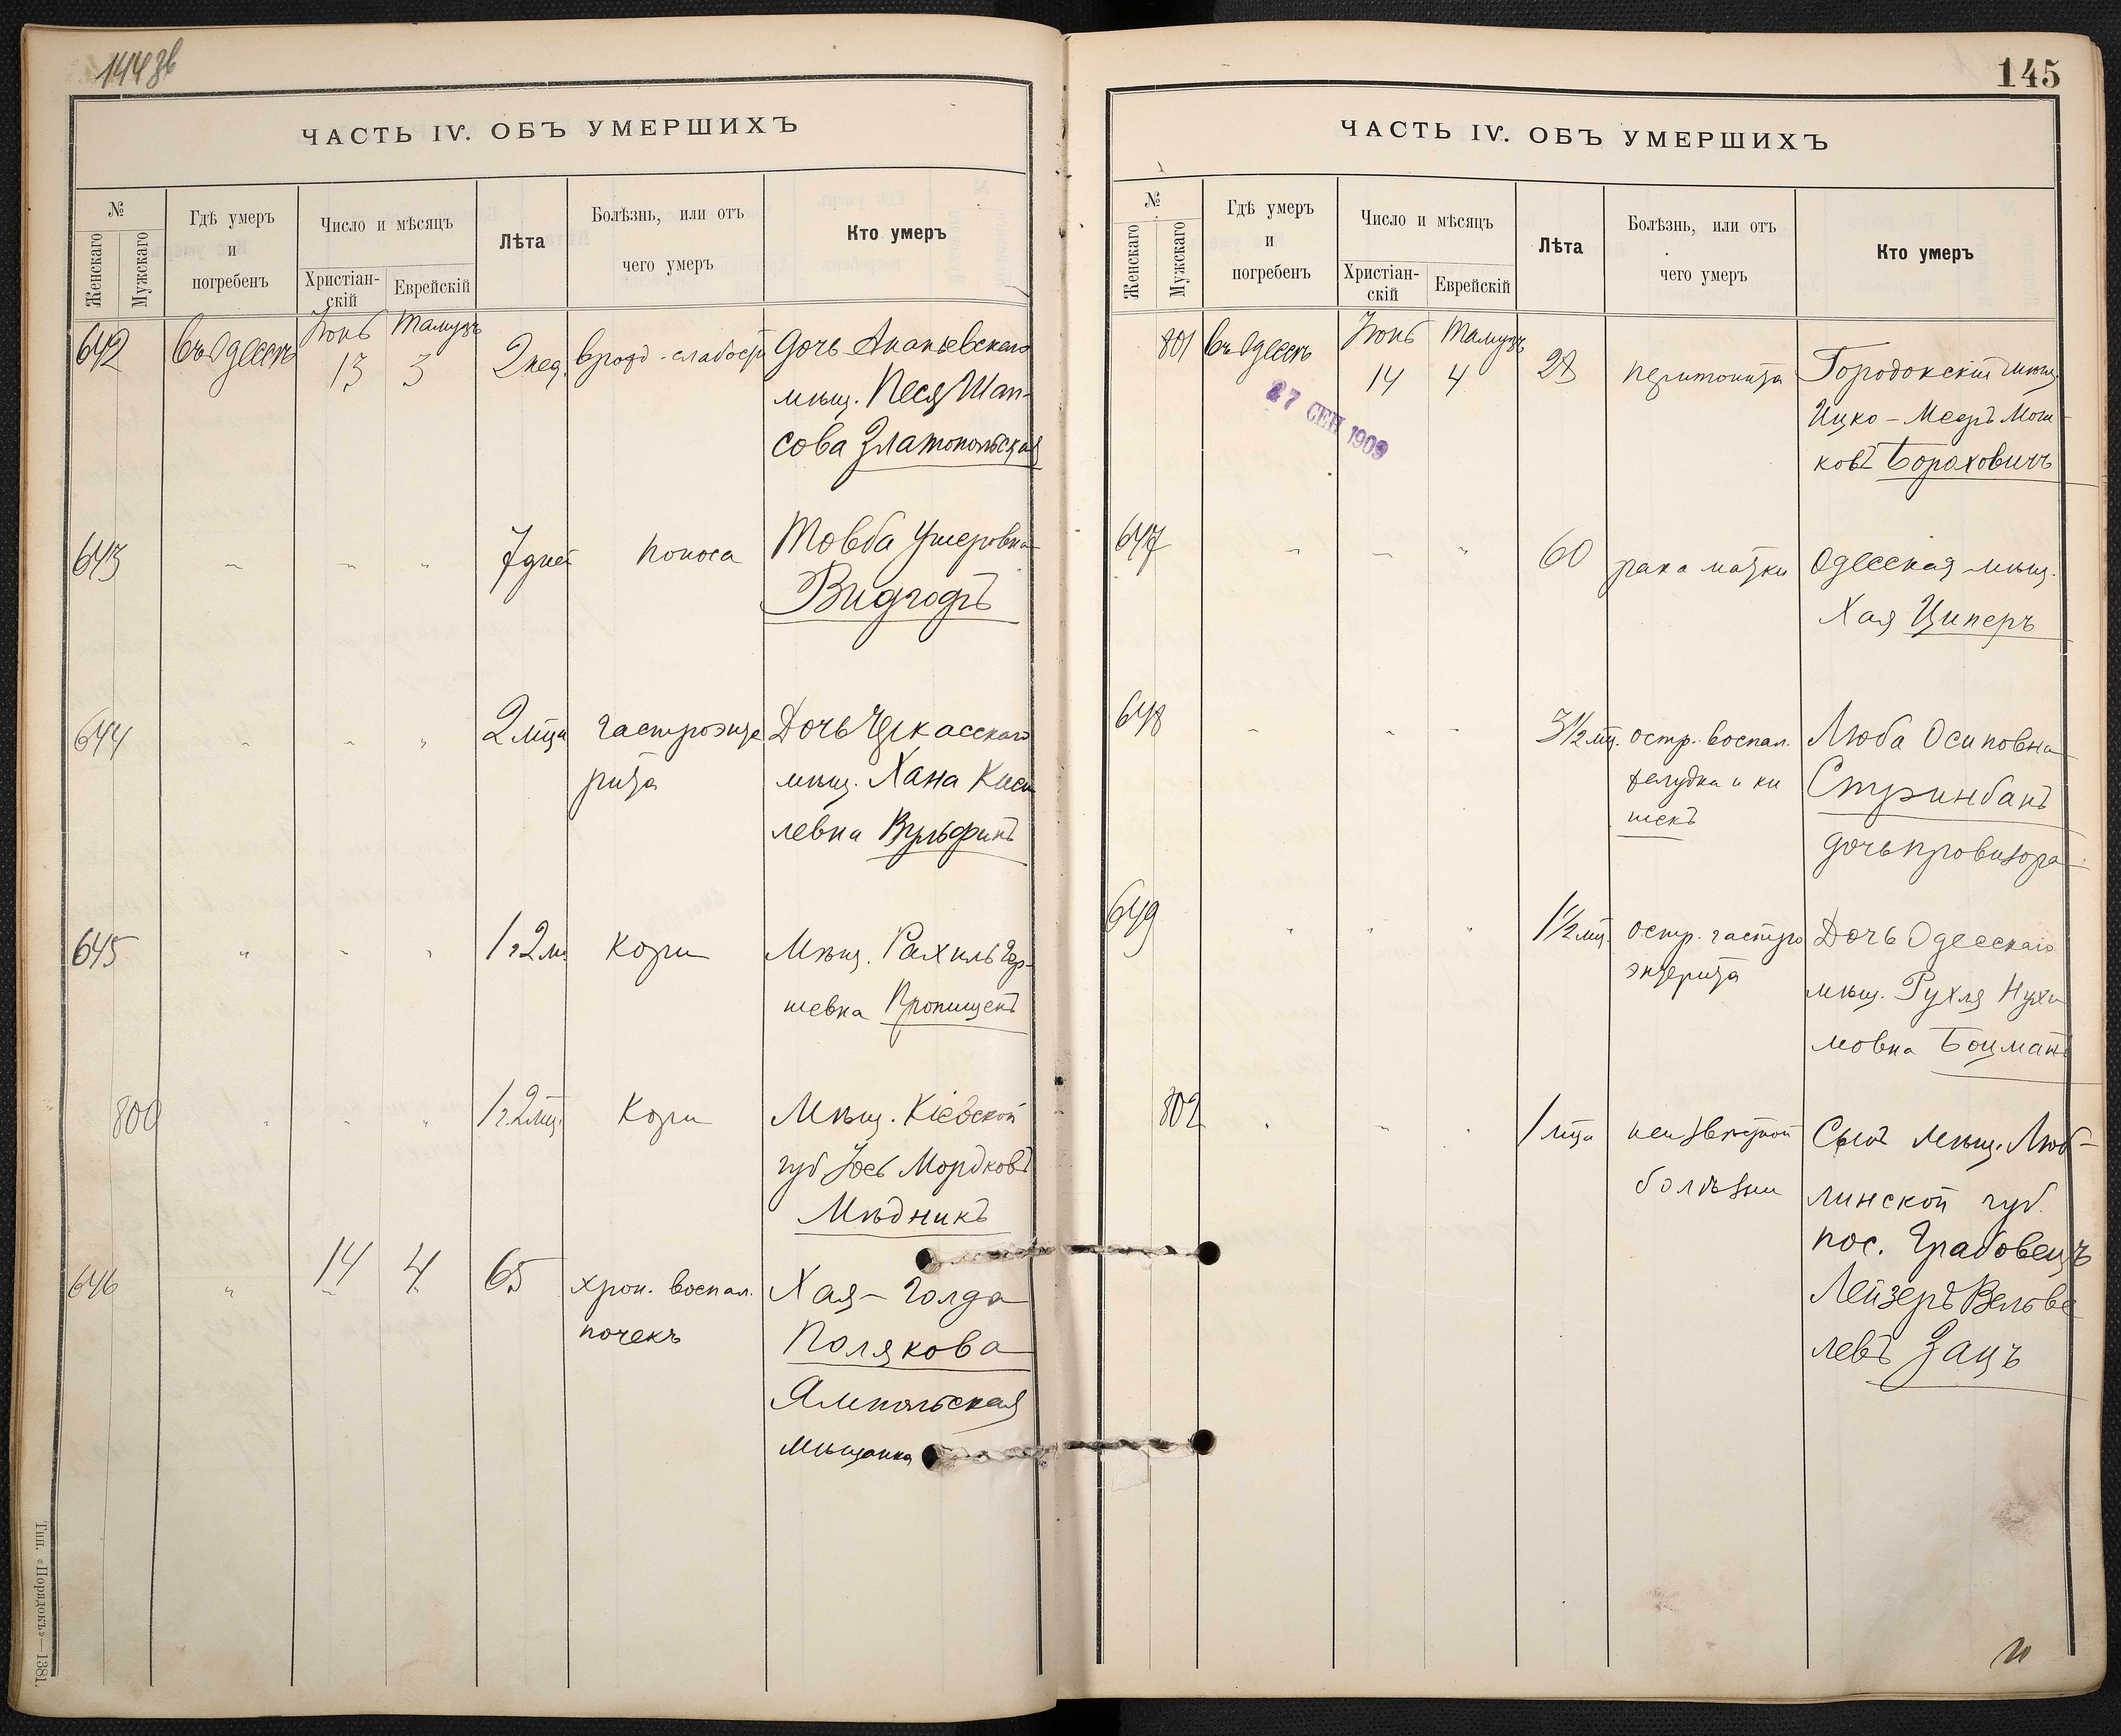 144 зв
ЧАСТЬ IV. ОБЪ УМЕРШИХЪ
№
Женскаго
Мужскаго
Гдѣ умеръ
и
погребенъ
Число и мѣсяцъ
Христіан-
скій
Еврейскій
Лѣта
Болѣзнь, или отъ
чего умеръ
Кто умеръ
642 въ Одессѣ Іюнь 13 Тамузъ 3 2 нед. врожд. слабости Дочь Ананьевскаго
мѣщ. Песя Шап-
сова Златопольская
643 " " " 7 дней поноса Товба Ушеровна
Видгодъ
644 " " " 2 мца гастроэнте Дочь Черкасскаго
рита мѣщ. Хана Киси
левна Вульфинъ
645 " " " 1 г 2 м. Кори Мѣщ. Рахиль Гер-
шевна Пропищенъ
800 " " " 1 г. 2 мц. Кори Мѣщ. Кіевской
губ Іось Мордковъ
Мѣдникъ
646 " 14 4 65 хрон. воспал. Хая-Голда
почекъ Полякова
Ямпольская
мѣщанка
Тип. «Порядокъ»—1381.
145
ЧАСТЬ IV. ОБЪ УМЕРШИХЪ
№
Женскаго
Мужскаго
Гдѣ умеръ
и
погребенъ
Число и мѣсяцъ
Христіан-
скій
Еврейскій
Лѣта
Болѣзнь, или отъ
чего умеръ
Кто умеръ
801 въ Одессѣ Іюнь 14 Тамузъ 4 28 перитонита Городокскій мѣщ.
Ицко-Мееръ Мош
ковъ Бороховичъ
27 СЕН 1909
647 " " " 60 рака матки Одесская мѣщ.
Хая Циперъ
648 " " " 3½ мц. остр. воспал. Люба Осиповна
желудка и ки Стринбанъ
шекъ
дочь провизора
649 " " " 1½ мц. остр. гастро Дочь Одесскаго
энтерита мѣщ. Рухля Нухи
мовна Боцманъ
802 " " " 1 мца неизвѣстной Сынъ мѣщ. Люб-
болѣзни линской губ.
пос. Грабовецъ
Лейзеръ Вельве
левъ Зацъ